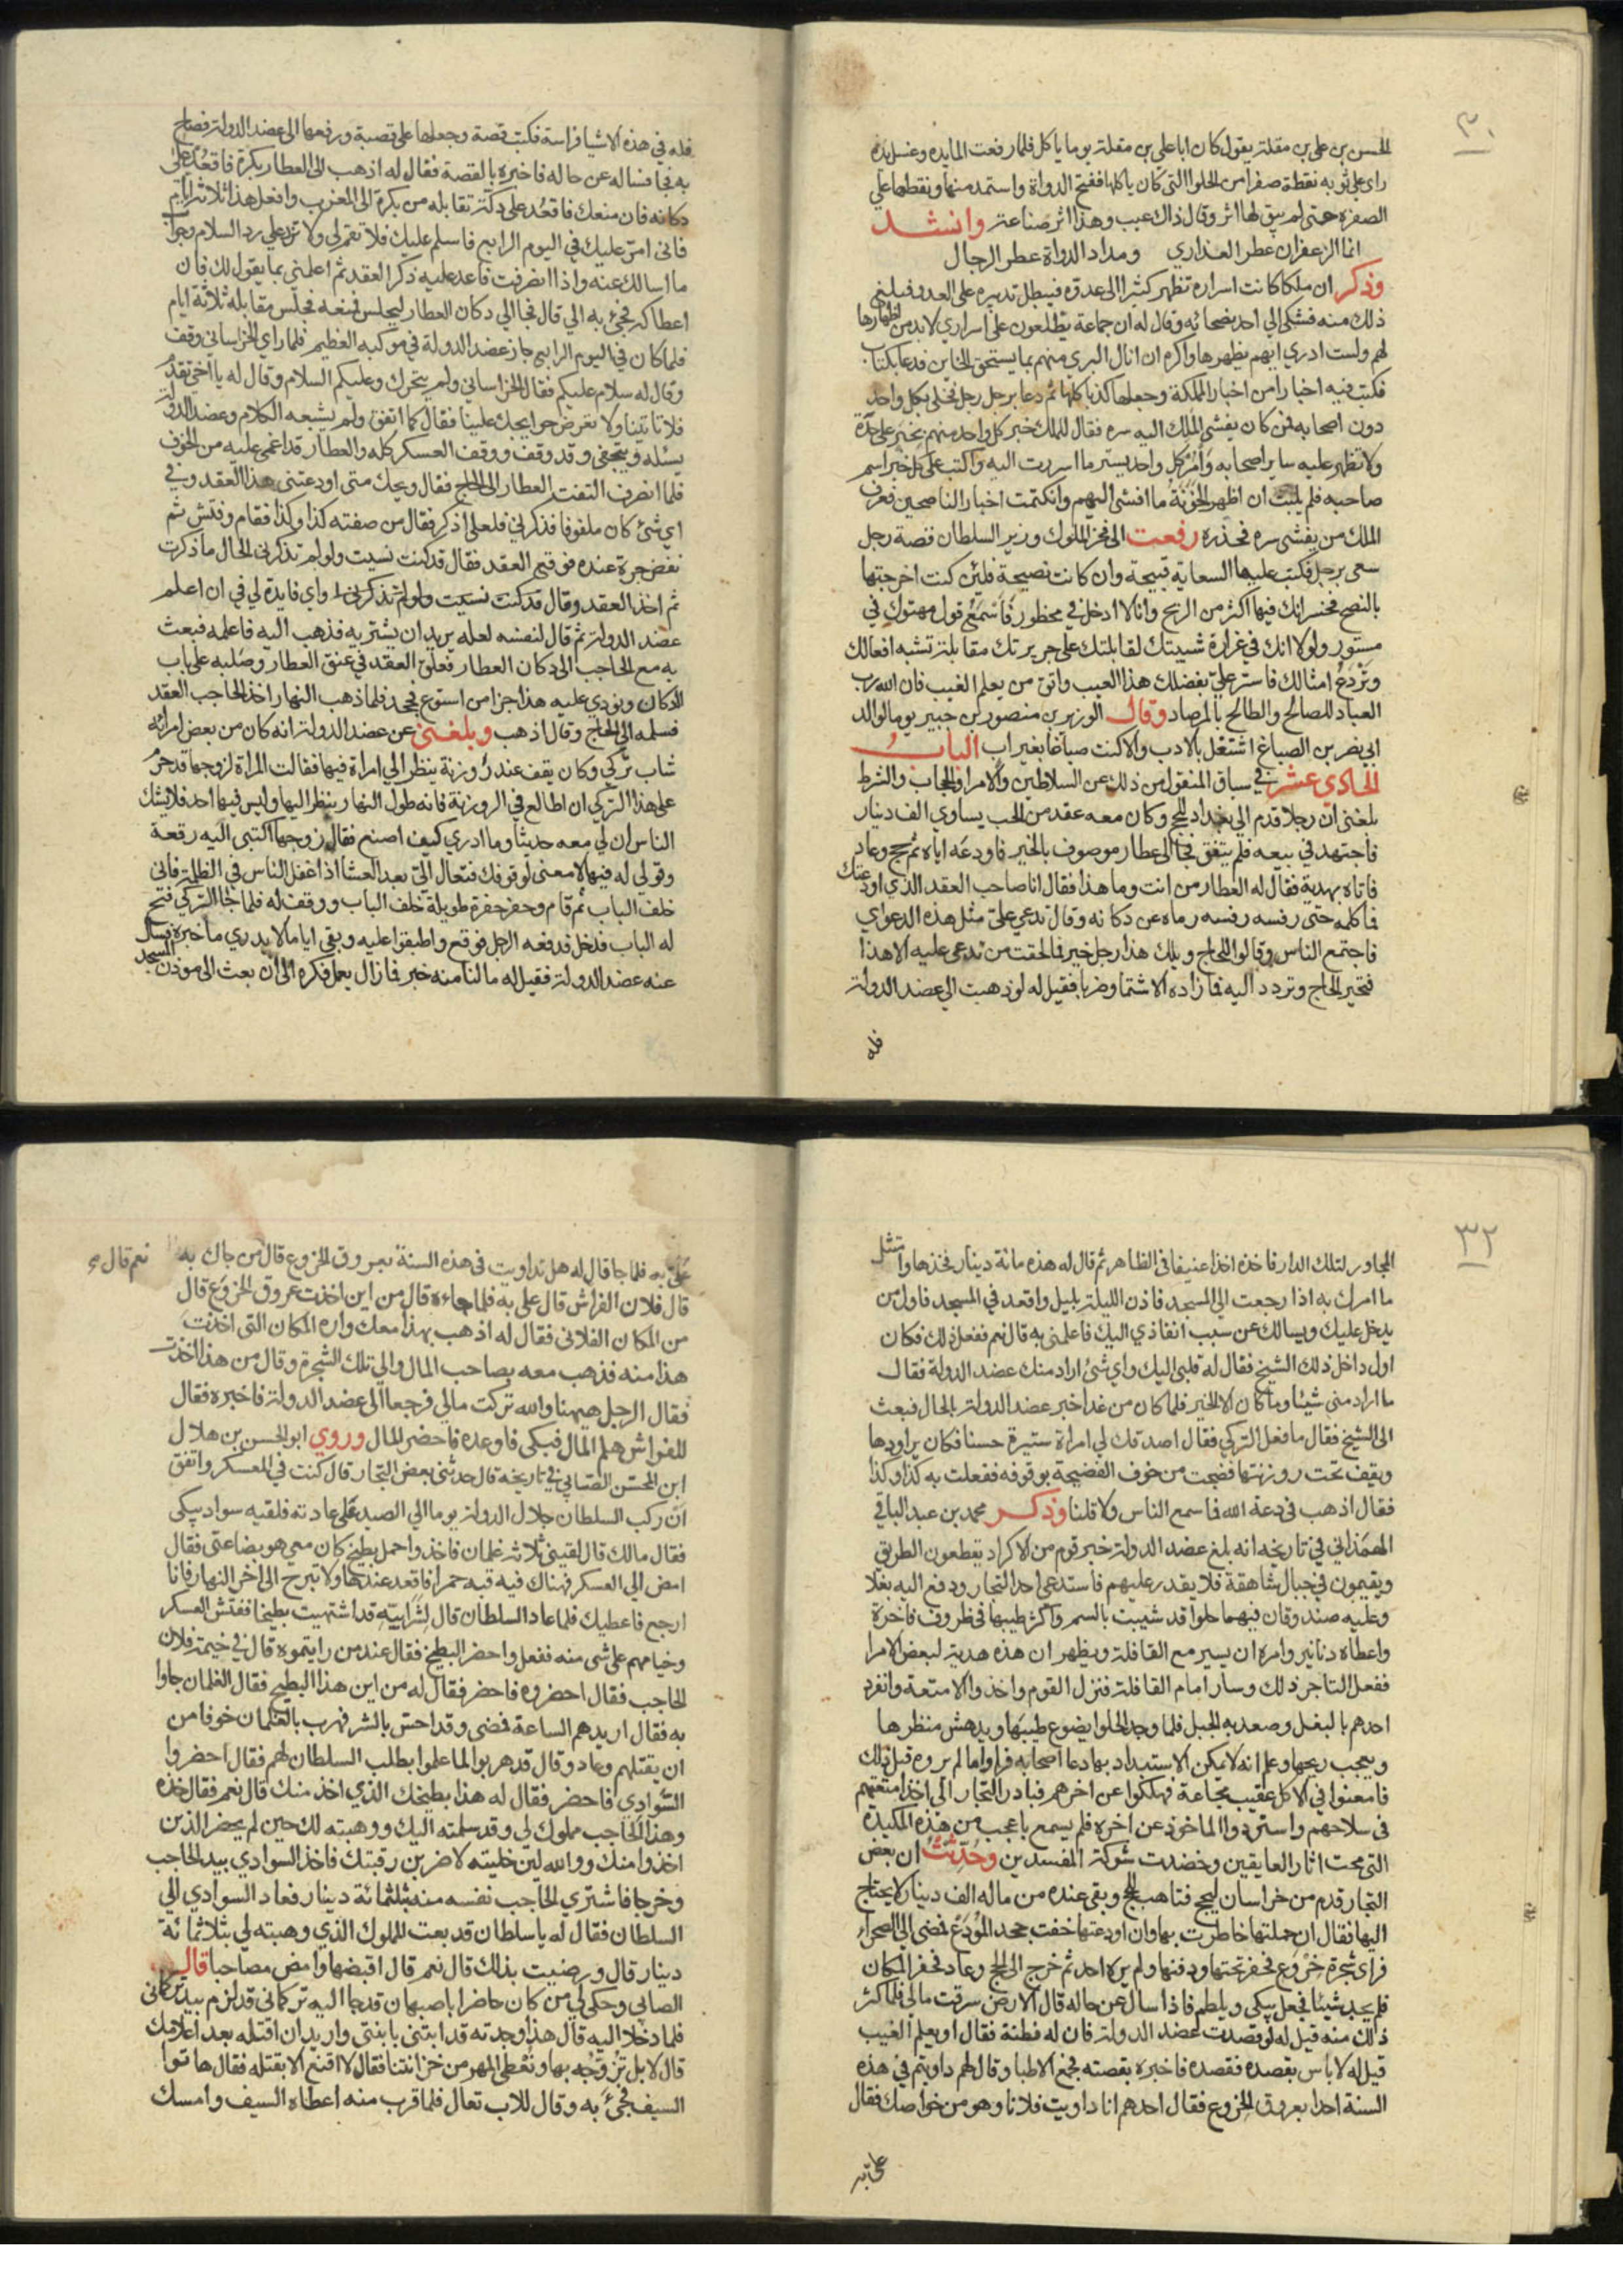 ٣٠
الحسن بن علي بن مقلة يقول كان ابا علي بن مقلة يوما ياكل فلما رفعت المايده وغسل يده
راى على ثوبه نقطة صفرا من الحلوا التي كان ياكلها ففتح الدواة واستمد منها ونقطها على
الصفره حتى لم يبق لها اثر وقال ذاك عيب وهذا اثر صناعة وانشد
انما الزعفران عطر العذاري ومداد الدواة عطر الرجال
وذكر ان ملكا كانت اسراره تظهر كثيرا الى عدوه فيبطل تدبيره على العدو فبلغ
ذلك منه فشكى الي احد نصحائه وقال له ان جماعة يطلعون على اسراري لا بد من اظهارها
لهم ولست ادري ايهم يظهرها واكره ان انال البري منهم بما يستحق الخاين فدعا بكتاب
فكتب فيه اخبارا من اخبار المملكة وجعلها كذبا كلها ثم دعا برجل رجل فخلى بكل واحد
دون اصحابه ممن كان يفشي الملك اليه سره فقال للملك خبر كل واحد منهم بخبر على حدة
ولا تظهر عليه ساير اصحابه وامر كل واحد بستر ما اسررت اليه واكتب على كل خبر اسم
صاحبه فلم يلبث ان اظهر الخونة ما افشى اليهم وانكتمت اخبار الناصحين فعرف
الملك من يفشي سره فحذره رفعت الى فخر الملوك وزير السلطان قصة رجل
سعى برجل فكتب عليها السعاية قبيحة وان كانت نصيحة فلئن كنت اخرجتها
بالنصح فخسرانك فيها اكثر من الربح وانا لا ادخل في محظور فاسمع قول مهتوك في
مستور ولولا انك في غرارة شبيبتك لقابلتك على جريرتك مقابلة تشبه افعالك
وتردع امثالك فاستر علي بفضلك هذا العيب واتق من يعلم الغيب فان الله رب
العباد للصالح والطالح بالمرصاد وقال الوزير بن منصور بن جبير يوما لوالد
ابي نصر بن الصباغ اشتغل بالادب والا كنت صباغا بغير اب الباب
الحادي عشر في سياق المنقول من ذلك عن السلاطين والامرا والحجاب والشرط
بلغني ان رجلا قدم الى بغداد للحج وكان معه عقد من الحب يساوي الف دينار
فاجتهد في بيعه فلم يتفق فجا الى عطار موصوف بالخير فاودعه اياه ثم حج وعاد
فاتاه بهدية فقال له العطار من انت وما هذا فقال انا صاحب العقد الذي اودعتك
فما كلمه حتى رفسه رفسه رماه عن دكانه وقال تدعي علي مثل هذه الدعواي
فاجتمع الناس وقالوا للحاج ويلك هذا رجل خير فما لحقت من تدعى عليه الا هذا
فتحير الحاج وتردد اليه فما زاده الا شتما وضربا فقيل له لو ذهبت الي عضد الدولة
فله
فله في هذه الاشيا فراسة فكتب قصة وجعلها على قصبة ورفعها الى عضد الدولة فصاح
به فجا فساله عن حاله فاخبره بالقصة فقال له اذهب الى العطار بكرة فاقعد على
دكانه فان منعك فاقعد على دكة تقابله من بكرة الى المغرب وافعل هذا ثلاثة ايام
فاني امر عليك في اليوم الرابع فاسلم عليك فلا تقم لي ولا تزد على رد السلام وجواب
ما اسالك عنه واذا انصرفت فاعد عليه ذكر العقد ثم اعلمني بما يقول لك فان
اعطاكه فجئ به الي قال فجا الي دكان العطار ليجلس فمنعه فجلس مقابله ثلاثة ايام
فلما كان في اليوم الرابع جاز عضد الدولة في موكبه العظيم فلما راى الخراساني وقف
وقال له سلام عليكم فقال الخراساني ولم يتحرك وعليكم السلام وقال له يا اخي تقدم
فلا تاتينا ولا تعرض حوايجك علينا فقال كما اتفق ولم يشبعه الكلام وعضد الدولة
يسئله ويتحفى وقد وقف ووقف العسكر كله والعطار قد اغمي عليه من الخوف
فلما انصرف التفت العطار الى الحاج فقال ويحك متى اودعتني هذا العقد وفي
اي شئ كان ملفوفا فذكرني فلعلي اذكر فقال من صفته كذا وكذا فقام وفتش ثم
نفض جرة عنده فوقع العقد فقال قد كنت نسيت ولو لم تذكرني الحال ما ذكرت
ثم اخذ العقد وقال قد كنت نسيت ولو لم تذكرني واي فايدة لي في ان اعلم
عضد الدولة ثم قال لنفسه لعله يريد ان يشتريه فذهب اليه فاعلمه فبعث
به مع الحاجب الى دكان العطار فعلق العقد في عنق العطار وصلبه على باب
الدكان ونودي عليه هذا جزا من استودع فجحد فلما ذهب النهار اخذ الحاجب العقد
فسلمه الى الحاج وقال اذهب وبلغني عن عضد الدولة انه كان من بعض امرائه
شاب تركي وكان يقف عند روزنة ينظر الي امراة فيها فقالت المراة لزوجها قد حرم
على هذا التركي ان اطالع في الروزنة فانه طول النهار ينظر اليها وليس فيها احد فلا يشك
الناس ان لي معه حديثا وما ادري كيف اصنع فقال زوجها اكتبي اليه رقعة
وقولي له فيها لا معنى لوقوفك فتعال الي بعد العشا اذا غفل الناس في الظلمة فاني
خلف الباب ثم قام وحفر حفرة طويلة خلف الباب ووقف له فلما جا التركي فتح
له الباب فدخل فدفعه الرجل فوقع واطبقوا عليه وبقي اياما لا يدري ما خبره فسال
عنه عضد الدولة فقيل له ما لنا منه خبر فما زال يعمل فكره الى ان بعث الى موذن المسجد
٣٢
المجاور لتلك الدار فاخذه اخذا عنيفا في الظاهر ثم قال له هذه مائة دينار فخذها وامتثل
ما امرك به اذا رجعت الى المسجد فاذن الليلة بليل واقعد في المسجد فاول من
يدخل عليك ويسالك عن سبب انفاذي اليك فاعلمني به قال نعم ففعل ذلك فكان
اول داخل ذلك الشيخ فقال له قلبي اليك واي شئ اراد منك عضد الدولة فقال
ما اراد مني شيئا وما كان الا الخير فلما كان من غد اخبر عضد الدولة بالحال فبعث
الى الشيخ فقال ما فعل التركي فقال اصدقك لي امراة ستيرة حسنا فكان يراودها
ويقف تحت روزنتها فضجت من خوف الفضيحة بوقوفه ففعلت به كذا وكذا
فقال اذهب في دعة الله فما سمع الناس ولا قلنا وذكر محمد بن عبد الباقي
الهمذاني في تاريخه انه بلغ عضد الدولة خبر قوم من الاكراد يقطعون الطريق
ويقيمون في جبال شاهقة فلا يقدر عليهم فاستدعى احد التجار ودفع اليه بغلا
وعليه صندوقان فيهما حلوا قد شيبت بالسم واكثر طيبها في ظروف فاخرة
واعطاه دنانير وامره ان يسير مع القافلة ويظهر ان هذه هدية لبعض الامرا
ففعل التاجر ذلك وسار امام القافلة فنزل القوم واخذوا الامتعة وانفرد
احدهم بالبغل وصعد به الجبل فلما وجد الحلوا يضوع طيبها ويدهش منظرها
ويعجب ريحها وعلم انه لا يمكن الاستبداد بها دعا اصحابه فراوا ما لم يروه قبل ذلك
فامعنوا في الاكل عقيب مجاعة فهلكوا عن اخرهم فبادر التجار الى اخذ امتعتهم
في سلاحهم واستردوا الماخوذ عن اخره فلم يسمع باعجب من هذه المكيدة
التي محت اثار العايقين وخضدت شوكة المفسدين وحدثت ان بعض
التجار قدم من خراسان ليحج فتاهب للحج وبقي عنده من ماله الف دينار لا يحتاج
اليها فقال ان حملتها خاطرت بها وان اودعتها خفت جحد المودع فمضى الى الصحراء
فراى شجرة خروع فحفر تحتها ودفنها ولم يره احد ثم خرج الى الحج وعاد فحفر المكان
فلم يجد شيئا فجعل يبكي ويلطم فاذا سال عن حاله قال الارض سرقت مالي فلما كثر
ذلك منه قيل له لو قصدت عضد الدولة فان له فطنة فقال او يعلم الغيب
قيل له لا باس بقصده فقصده فاخبره بقصته فجمع الاطبا وقال لهم داويتم في هذه
السنة احدا بعروق الخروع فقال احدهم انا داويت فلانا وهو من خواصك فقال
علي به
علي به فلما جا قال له هل تداويت في هذه السنة بعروق الخروع قال من جاك به نعم قال
قال فلان الفراش قال علي به فلما جاءه قال من اين اخذت عروق الخروع قال
من المكان الفلاني فقال له اذهب بهذا معك واره المكان التي اخذت
هذا منه فذهب معه بصاحب المال والي تلك الشجرة وقال من هذا اخذت
فقال الرجل ههنا والله تركت مالي فرجعا الى عضد الدولة فاخبره فقال
للفراش هلم المال فبكى فاوعده فاحضر المال وروي ابو الحسن بن هلال
ابن المحسن الصابي في تاريخه قال حدثني بعض التجار قال كنت في المعسكر واتفق
ان ركب السلطان جلال الدولة يوما الي الصيد على عادته فلقيه سوادي يبكي
فقال مالك قال لقيني ثلاثة غلمان فاخذوا حمل بطيخ كان معي هو بضاعتي فقال
امض الى العسكر فهناك فيه قبه حمرا فاقعد عندها ولا تبرح الى اخر النهار فانا
ارجع فاعطيك فلما عاد السلطان قال لشرابيه قد اشتهيت بطيخا ففتش العسكر
وخيامهم على شى منه ففعل واحضر البطيخ فقال عند من رايتموه قال في خيمة فلان
الحاجب فقال احضروه فاحضر فقال له من اين هذا البطيخ فقال الغلمان جاوا
به فقال اريدهم الساعة فمضى وقد احس بالشر فهرب بالغلمان خوفا من
ان يقتلهم وعاد وقال قد هربوا لما علموا بطلب السلطان لهم فقال احضروا
السوادي فاحضر فقال له هذا بطيخك الذي اخذ منك قال نعم فقال خذه
وهذا الحاجب مملوك لي وقد سلمته اليك ووهبته لك حين لم يحضر الذين
اخذوا منك ووالله لين خليته لاضربن رقبتك فاخذ السوادي بيد الحاجب
وخرجا فاشترى الحاجب نفسه منه بثلثمائة دينار فعاد السوادي الي
السلطان فقال له يا سلطان قد بعت المملوك الذي وهبته لي بثلاثمائة
دينار قال ورضيت بذلك قال نعم قال اقبضها وامض مصاحبا قال
الصابي وحكى لي من كان حاضرا باصبهان قد جا اليه تركماني قد لزم بيد تركماني
فلما دخلا اليه قال هذا وجدته قد ابتنى بابنتي واريد ان اقتله بعد اعلامك
قال لا بل تزوجه بها ونعطي المهر من خزانتنا فقال لا اقنع الا بقتله فقال هاتوا
السيف فجئ به وقال للاب تعال فلما قرب منه اعطاه السيف وامسك